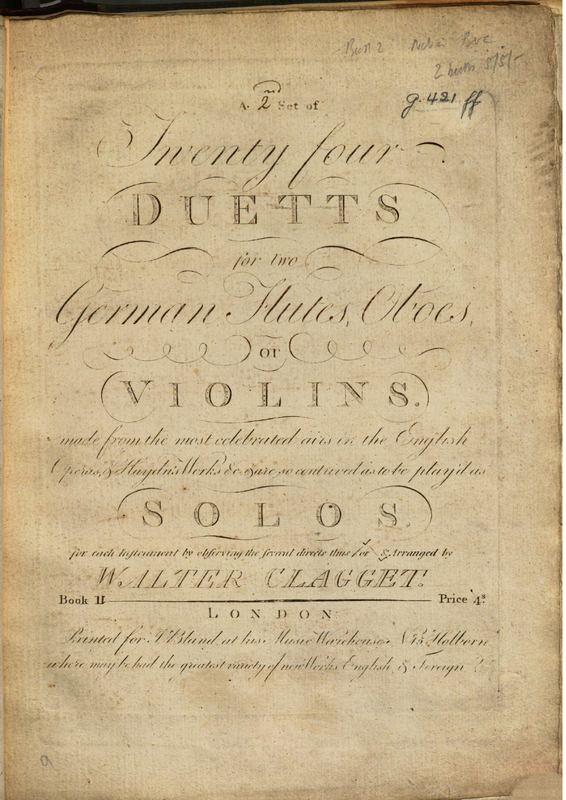 g. 421 ff
A. 2nd Set of
Twenty four
DUETTS
for two
German Flutes, Oboes,
or
VIOLINS.
made from the most celebrated airs in the English
Operas, & Haydn's Works &c. & are so contrived as to be play'd as
SOLOS.
for each Instrument by observing the several directs thus or & Arranged by
WALTER CLAGGET.
Book II Price 4s
LONDON
Printed for J. Bland at his Music Warehouse No. 45 Holborn
where may be had the greatest variety of new Works English & Foreign